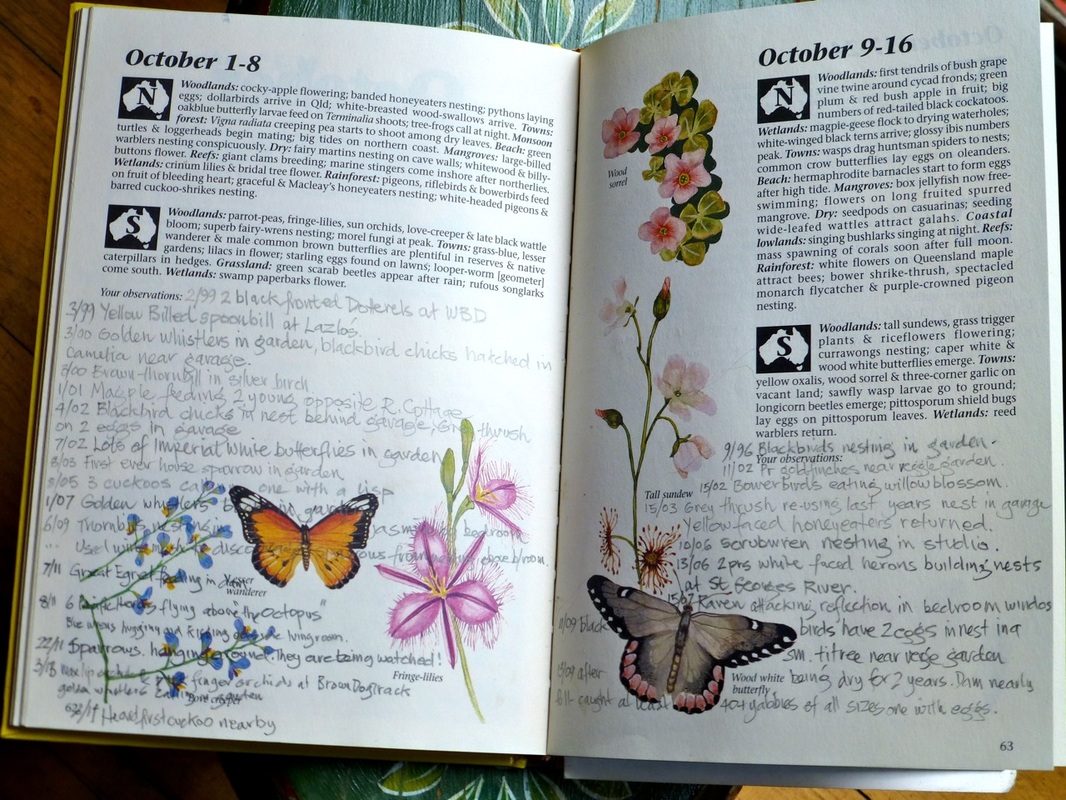 October 1-8
N
Woodlands: cocky-apple flowering; banded honeyeaters nesting; pythons laying
eggs; dollarbirds arrive in Qld; white-breasted wood-swallows arrive. Towns:
oakblue butterfly larvae feed on Terminalia shoots; tree-frogs call at night. Monsoon
forest: Vigna radiata creeping pea starts to shoot among dry leaves. Beach: green
turtles & loggerheads begin mating; big tides on northern coast. Mangroves: large-billed
warblers nesting conspicuously. Dry: fairy martins nesting on cave walls; whitewood & billy-
buttons flower. Reefs: giant clams breeding; marine stingers come inshore after northerlies.
Wetlands: crinum lilies & bridal tree flower. Rainforest: pigeons, riflebirds & bowerbirds feed
on fruit of bleeding heart; graceful & Macleay's honeyeaters nesting; white-headed pigeons &
barred cuckoo-shrikes nesting.
S
Woodlands: parrot-peas, fringe-lilies, sun orchids, love-creeper & late black wattle
bloom; superb fairy-wrens nesting; morel fungi at peak. Towns: grass-blue, lesser
wanderer & male common brown butterflies are plentiful in reserves & native
gardens; lilacs in flower; starling eggs found on lawns; looper-worm [geometer]
caterpillars in hedges. Grassland: green scarab beetles appear after rain; rufous songlarks
come south. Wetlands: swamp paperbarks flower.
Your observations: 2/99 2 black fronted Doterels at WBD
3/99 Yellow Billed spoonbill at Lazlos.
3/00 Golden Whistlers in garden, blackbird chicks hatched in
Camulia near garage.
3/00 Brown thornbill in silver birch
1/01 Magpie feeding 2 young opposite R. Cottage
4/02 Blackbird chicks in nest behind garage, Grey thrush
on 2 eggs in garage
7/02 Lots of Imperial White butterflies in garden
8/03 First ever house sparrow in garden
5/05 3 cuckoos one with a lisp
1/07 Golden whistlers in garden
6/09 Thornbills nesting in jasmine bedroom
7/11 Great Egret feeding in dam
Lesser
wanderer
8/11 6 flying above the "Octopus"
Blue wrens hugging and kissing living room.
22/11 Sparrows hanging around. They are being watched!
3/18 finger orchids at Brown Dogtrack
golden whistlers
Fringe-lilies
Head first cuckoo nearby
October 9-16
N
Woodlands: first tendrils of bush grape
vine twine around cycad fronds; green
plum & red bush apple in fruit; big
numbers of red-tailed black cockatoos.
Wetlands: magpie-geese flock to drying waterholes;
white-winged black terns arrive; glossy ibis numbers
peak. Towns: wasps drag huntsman spiders to nests;
common crow butterflies lay eggs on oleanders.
Beach: hermaphrodite barnacles start to form eggs
after high tide. Mangroves: box jellyfish now free-
swimming; flowers on long fruited spurred
mangrove. Dry: seedpods on casuarinas; seeding
wide-leafed wattles attract galahs. Coastal
lowlands: singing bushlarks singing at night. Reefs:
mass spawning of corals soon after full moon.
Rainforest: white flowers on Queensland maple
attract bees; bower shrike-thrush, spectacled
monarch flycatcher & purple-crowned pigeon
nesting.
Wood
sorrel
S
Woodlands: tall sundews, grass trigger
plants & riceflowers flowering;
currawongs nesting; caper white &
wood white butterflies emerge. Towns:
yellow oxalis, wood sorrel & three-corner garlic on
vacant land; sawfly wasp larvae go to ground;
longicorn beetles emerge; pittosporum shield bugs
lay eggs on pittosporum leaves. Wetlands: reed
warblers return.
9/96 Blackbirds nesting in garden.
Your observations:
11/02 Pr goldfinches near vegie garden.
15/02 Bowerbirds eating willow blossom.
Tall sundew
15/03 Grey thrush re-using last years nest in garage
Yellow faced honeyeaters returned.
10/06 scrubwren nesting in studio.
13/06 2 prs white faced herons building nests
at St Georges River.
15/07 Raven attacking reflection in bedroom window
11/09 black birds have 2 eggs in nest in a
sm. titree near vegie garden
15/09 after being dry for 2 years. Dam nearly
full caught at least 404 yabbies of all sizes one with eggs.
Wood white
butterfly
63